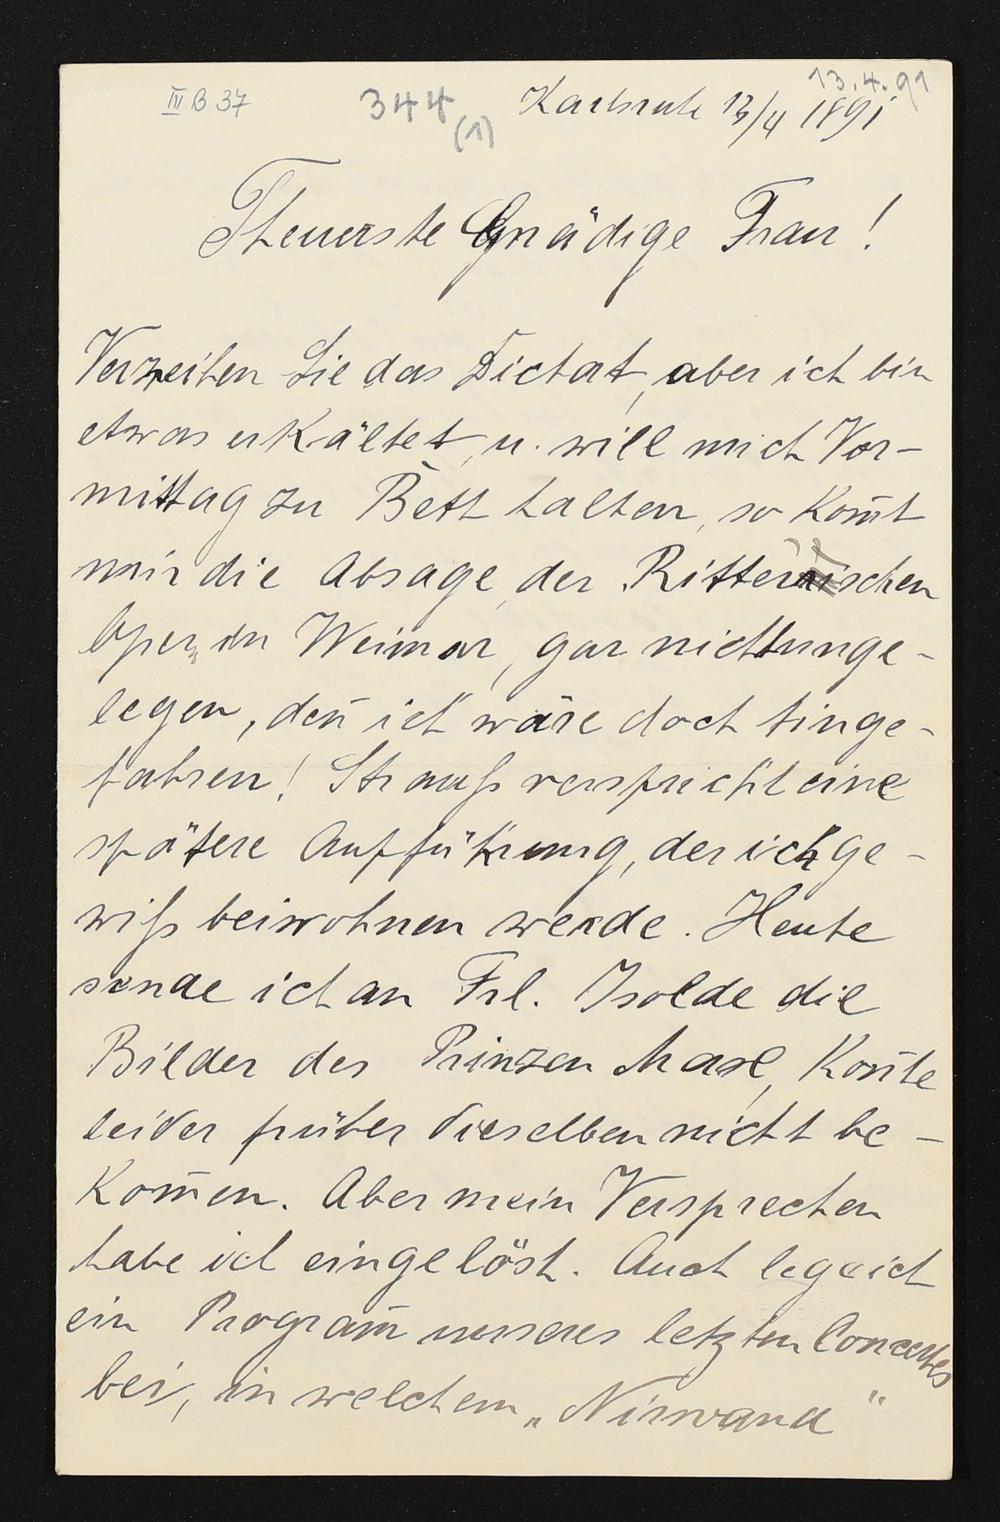 III B 37
344
(1)
13.4.91
Karlsruhe 13/4 1891
Theuerste Gnädige Frau!
Verzeihen Sie das Dictat, aber ich bin
etwas erkältet, u. will mich Vor-
mittag zu Bett halten, so kom̄t
mir die Absage der Ritter'ischen
Oper, in Weimar, gar nicht unge-
legen, den̄ ich wäre doch hinge-
fahren! Strauß verspricht eine
spätere Aufführung, der ich ge-
wiß beiwohnen werde. Heute
sende ich an Frl. Isolde die
Bilder des Prinzen Max, kon̄te
leider früher dieselben nicht be-
kom̄en. Aber mein Versprechen
habe ich eingelöst. Auch lege ich
ein Program̄ unseres letzten Concertes
bei, in welchem „Nirwana"